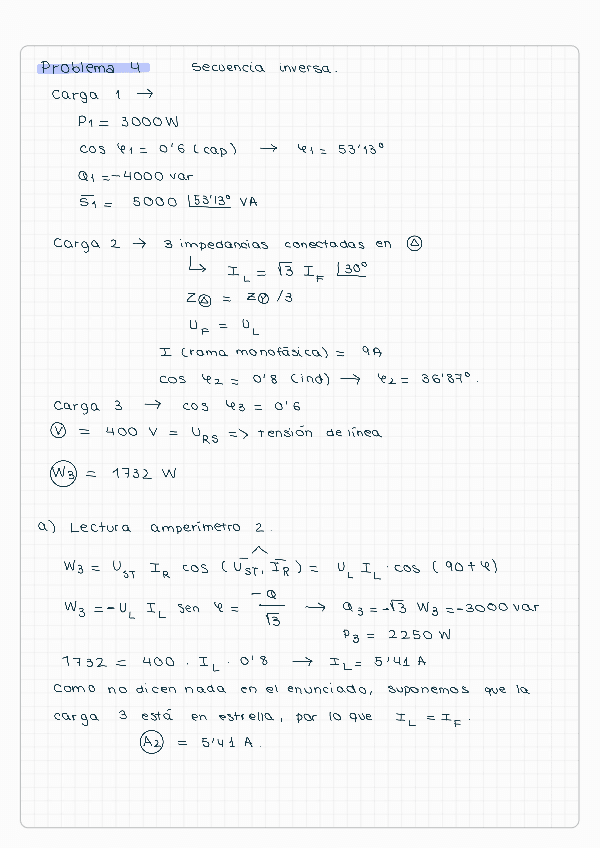 Problema 4 Secuencia inversa.
Carga 1 →
P1 = 3000 W
cos φ1 = 0'6 (cap) → φ1 = 53'13°
Q1 = -4000 var
S̅1 = 5000 |53'13° VA
Carga 2 → 3 impedancias conectadas en Δ
↳ I_L = √3 I_F |30°
Z_Δ = Z_Y /3
U_F = U_L
I (rama monofásica) = 9A
cos φ2 = 0'8 (ind) → φ2 = 36'87°.
Carga 3 → cos φ3 = 0'6
V = 400 V = U_RS => tensión de línea
W3 = 1732 W
a) Lectura amperímetro 2.
W3 = U_ST I_R cos (U̅_ST, I̅_R) = U_L I_L · cos (90 + φ)
W3 = -U_L I_L sen φ = -Q/√3 → Q3 = -√3 W3 = -3000 var
P3 = 2250 W
1732 = 400 · I_L · 0'8 → I_L = 5'41 A
Como no dicen nada en el enunciado, suponemos que la
carga 3 está en estrella, por lo que I_L = I_F.
A2 = 5'41 A.